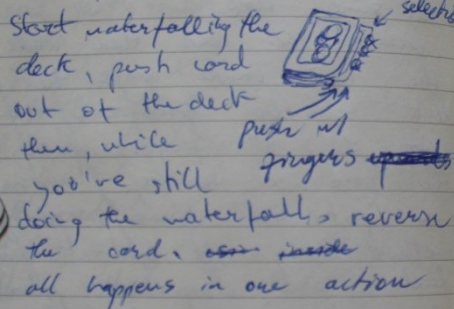 Start waterfalling the
deck, push card
out of the deck
then, while
you've still
doing the waterfall, reverse
the card.
all happens in one action
push w/
fingers